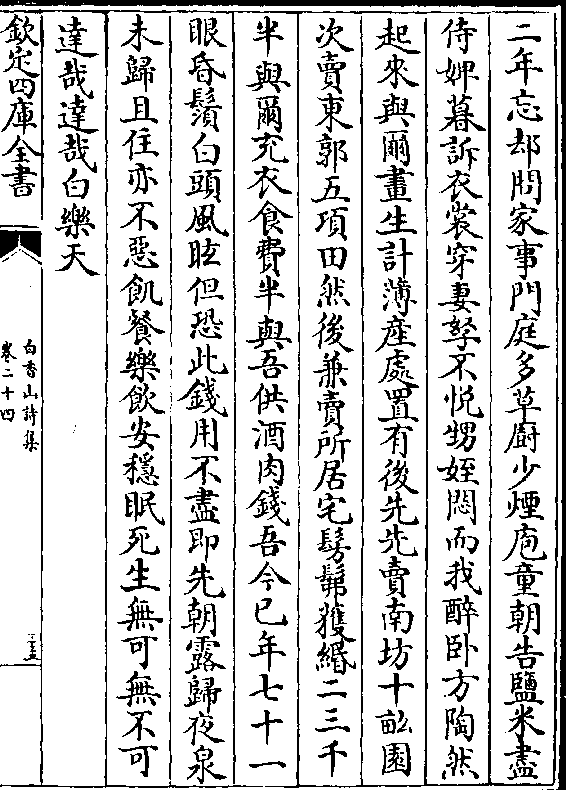 二年忘却問家事門庭多草廚少煙庖童朝告鹽米盡
侍婢暮訴衣裳穿妻孥不悅甥姪悶而我醉卧方陶然
起來與爾畫生計薄產處置有後先先賣南坊十畝園
次賣東郭五頃田然後兼賣所居宅髣髴獲緡二三千
半與爾充衣食費半與吾供酒肉錢吾今已年七十一
眼昏鬚白頭風眩但恐此錢用不盡即先朝露歸夜泉
未歸且住亦不惡飢餐樂飲安穩眠死生無可無不可
達哉達哉白樂天
欽定四庫全書
白香山詩集
卷二十四